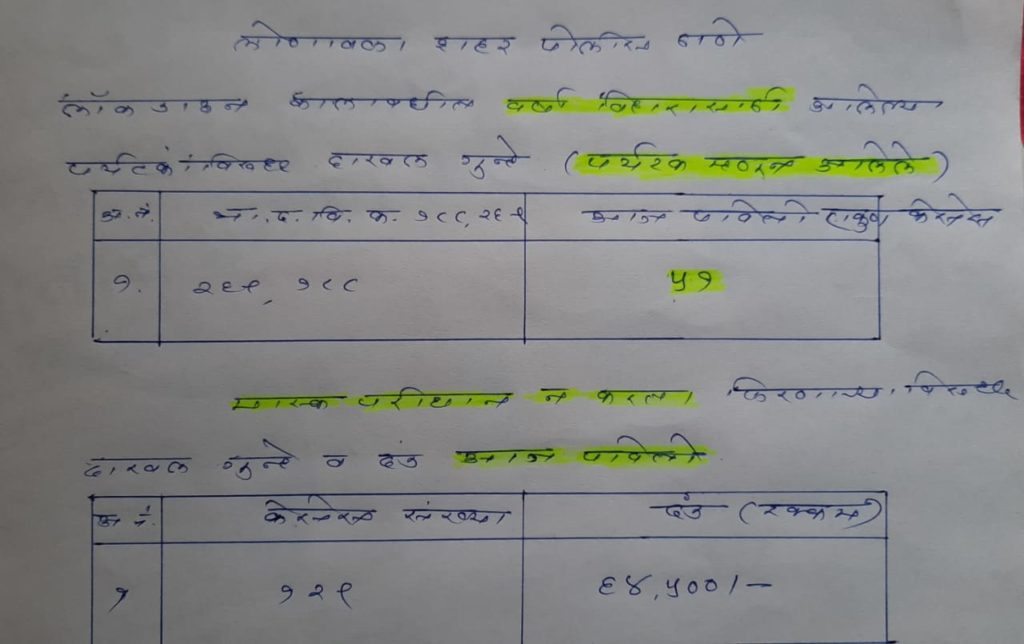 लोणावळा शहर पोलीस ठाणे
लॉकडाउन कालावधीत वर्षा विहारासाठी आलेल्या
पर्यटकांविरुद्ध दाखल गुन्हे (पर्यटक म्हणून आलेले)
अ.नं. भा. द. वि. क. १८८, २६९ आज पावेतो एकुण केसेस
१. २६९, १८८ ५१
मास्क परीधान न करता फिरणाऱ्या विरुद्ध
दाखल गुन्हे व दंड आज पावेतो
अ नं. केसेस संख्या दंड (रक्कम)
१ १२९ ६४,५००/-